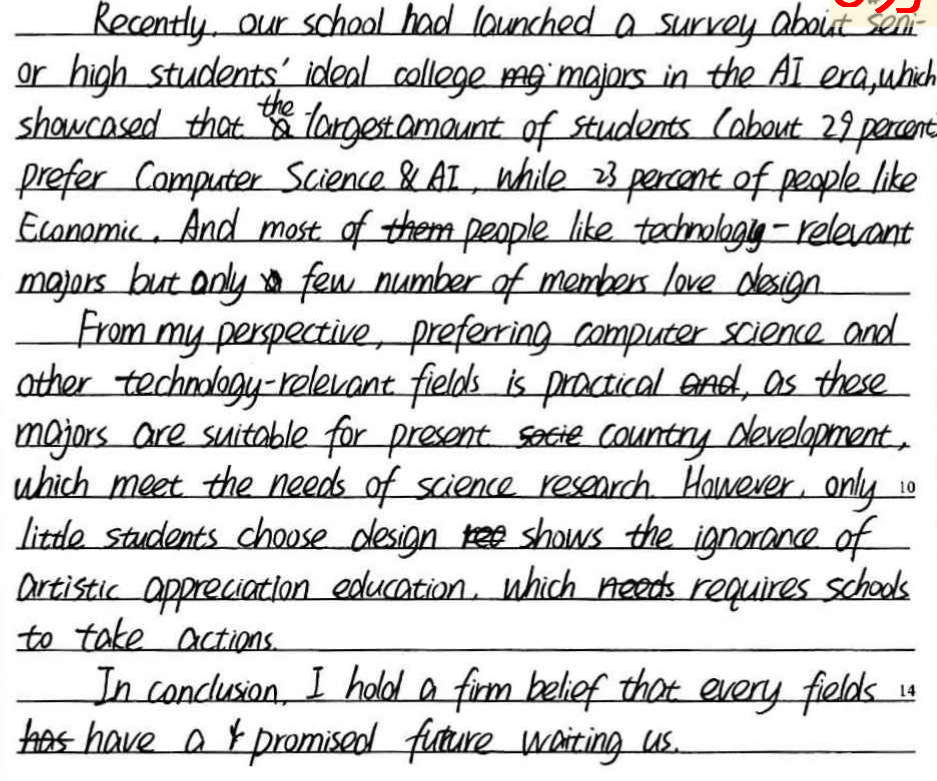 Recently, our school had launched a survey about seni-
or high students' ideal college majors in the AI era, which
showcased that the largest amount of students (about 29 percent
prefer Computer Science & AI, while 23 percent of people like
Economic. And most of them people like technology-relevant
majors but only few number of members love design
From my perspective, preferring computer science and
other technology-relevant fields is practical and, as these
majors are suitable for present socie country development,
which meet the needs of science research. However, only 10
little students choose design shows the ignorance of
artistic appreciation education, which needs requires schools
to take actions.
In conclusion, I hold a firm belief that every fields 14
has have a promised future waiting us.